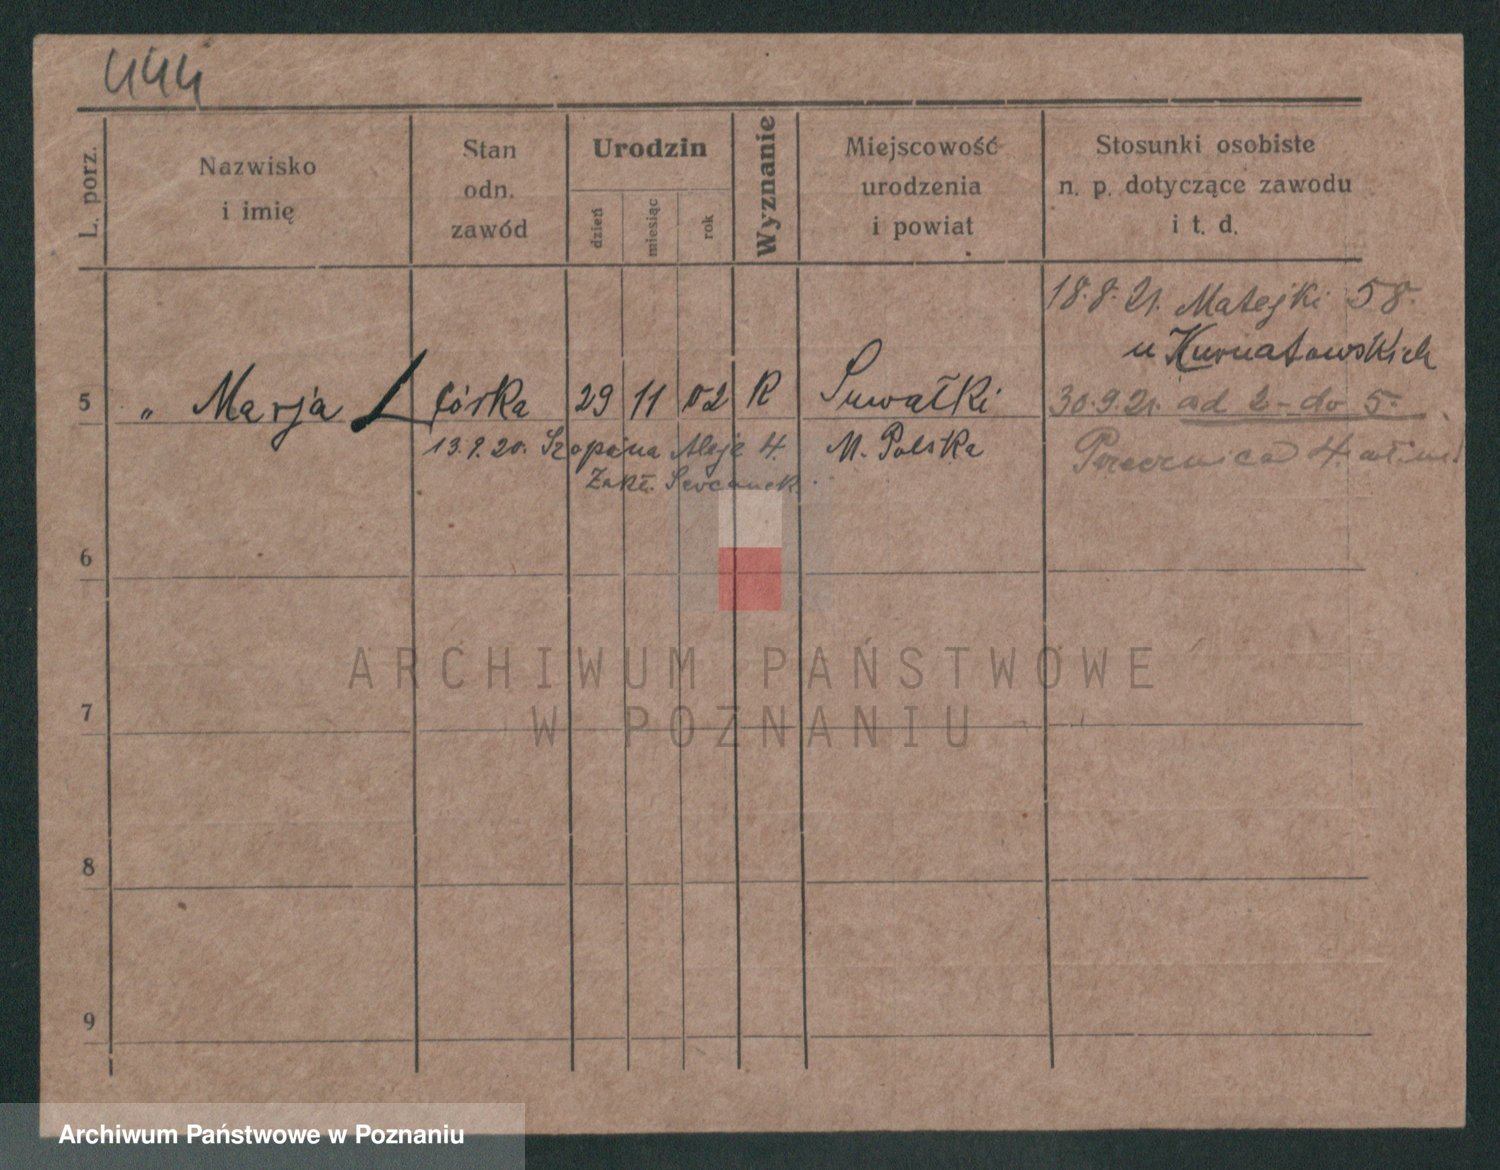 444
L. porz.
Nazwisko
i imię
Stan
odn.
zawód
Urodzin
dzień
miesiąc
rok
Wyznanie
Miejscowość
urodzenia
i powiat
Stosunki osobiste
n. p. dotyczące zawodu
i t. d.
18.8.21. Matejki 58.
u Kurnatowskich
5 „ Marja córka 29 11 02 R Suwałki 30.9.21. od 2 - do 5.
13.9.20. Szopena Aleje 4. M. Polska
Zakł.
6
ARCHIWUM PAŃSTWOWE
W POZNANIU
7
8
9
Archiwum Państwowe w Poznaniu